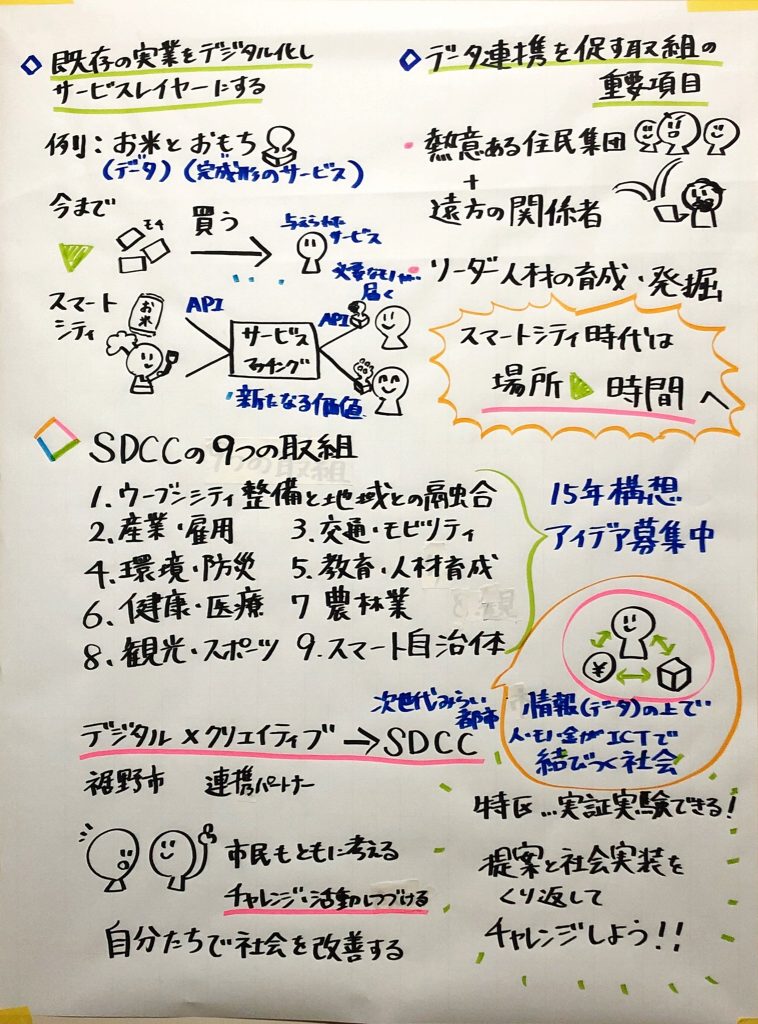 既存の実業をデジタル化し
サービスレイヤーにする
例）：お米とおもち
（データ）（完成形のサービス）
今まで
モチ
買う
与えられた
サービス
スマート
シティ
お米
API
サービス
マッチング
API
必要なモノが…
届く
新たなる価値
データ連携を促す取組の
重要項目
・熱意ある住民集団
+
遠方の関係者
・リーダー人材の育成・発掘
スマートシティ時代は
場所▶時間へ
SDCCの9つの取組
1.ウーブンシティ整備と地域との融合
2.産業・雇用
3.交通・モビリティ
4.環境・防災
5.教育・人材育成
6.健康・医療
7 農林業
8.観光・スポーツ
9.スマート自治体
15年構想
アイデア募集中
¥
情報（データ）の上で
人・モノ・金がICTで
結びつく社会
次世代みらい
都市
デジタル×クリエイティブ→SDCC
裾野市 連携パートナー
市民もともに考える
チャレンジ・活動しつづける
自分たちで社会を改善する
特区…実証実験できる！
提案と社会実装を
くり返して
チャレンジしよう！！